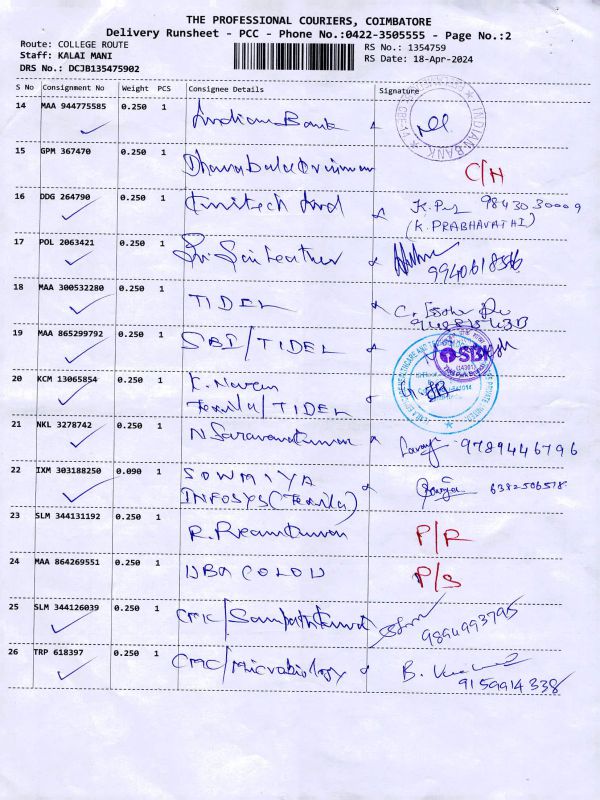 THE PROFESSIONAL COURIERS, COIMBATORE
Delivery Runsheet - PCC - Phone No.:0422-3505555 - Page No.:2
Route: COLLEGE ROUTE
Staff: KALAI MANI
DRS No.: DCJB135475902
RS No.: 1354759
RS Date: 18-Apr-2024
S No Consignment No Weight PCS Consignee Details Signature
14 MAA 944775585 0.250 1 Indian Bank
INDIAN BANK
15 GPM 367470 0.250 1 C/H
16 DDG 264790 0.250 1 98430 30009
(K. PRABHAVATHI)
17 POL 2063421 0.250 1 Sri Sai Leather
18 MAA 300532280 0.250 1 TIDEL
19 MAA 865299792 0.250 1 SBI/TIDEL
SBI
20 KCM 13065854 0.250 1 K. Naveen
/TIDEL
21 NKL 3278742 0.250 1 N Saravanakumar 9789446796
22 IXM 303188250 0.090 1 SOWMIYA 6382506578
INFOSYS
23 SLM 344131192 0.250 1 P/R
24 MAA 864269551 0.250 1 P/S
25 SLM 344126039 0.250 1 CMC/Sampathkumar 9894993795
26 TRP 618397 0.250 1 CMC/Microbiology B.
9159914338